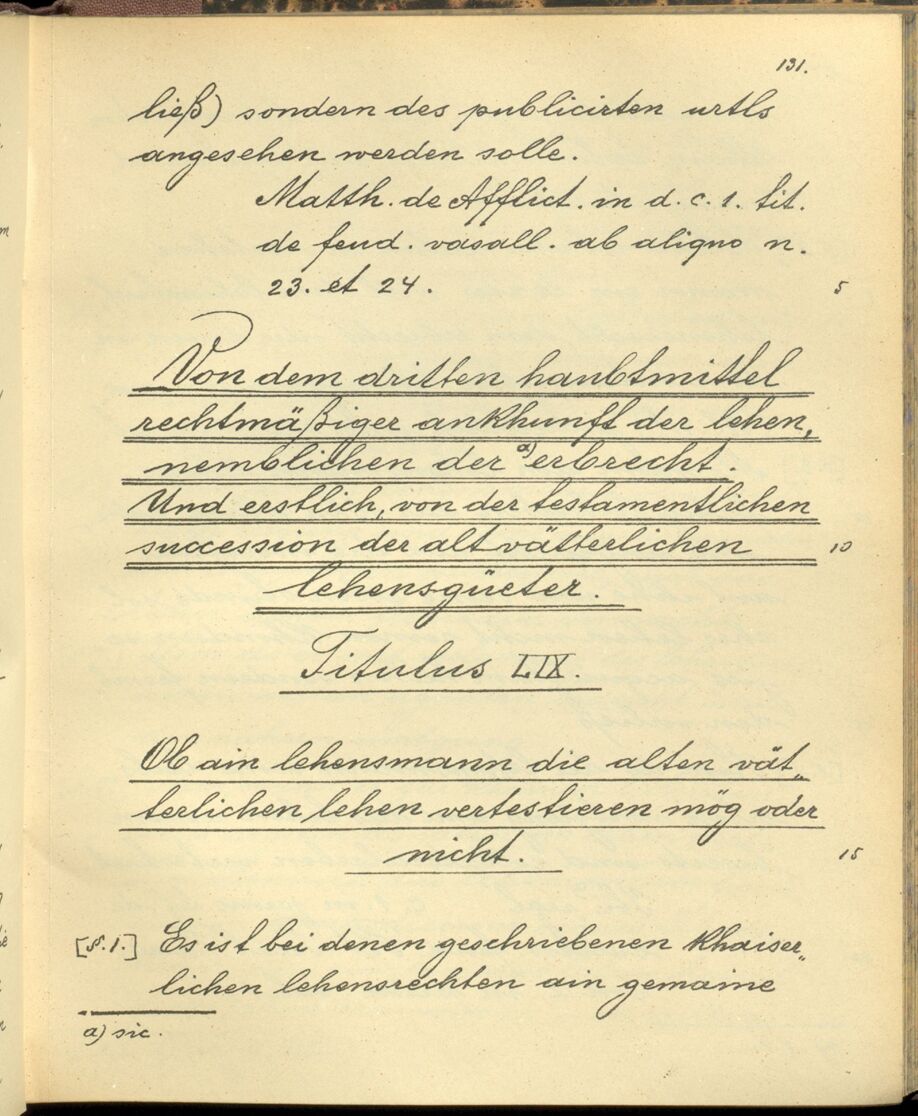 131.
ließ) sondern des publicirten urtls
angesehen werden solle.
Matth. de Afflict. in d. c. 1. tit.
de feud. vasall. ab aliquo n.
23. et 24.
5
Von dem dritten haubtmittel
rechtmäßiger ankhunft der lehen,
nemblichen der a) erbrecht.
Und erstlich, von der testamentlichen
succession der alt vätterlichen
10
lehensgüeter.
Titulus LIX.
Ob ain lehensmann die alten vät„
terlichen lehen vertestieren mög oder
nicht.
15
[§. 1.] Es ist bei denen geschriebenen khaiser„
lichen lehensrechten ain gemaine
a) sic.